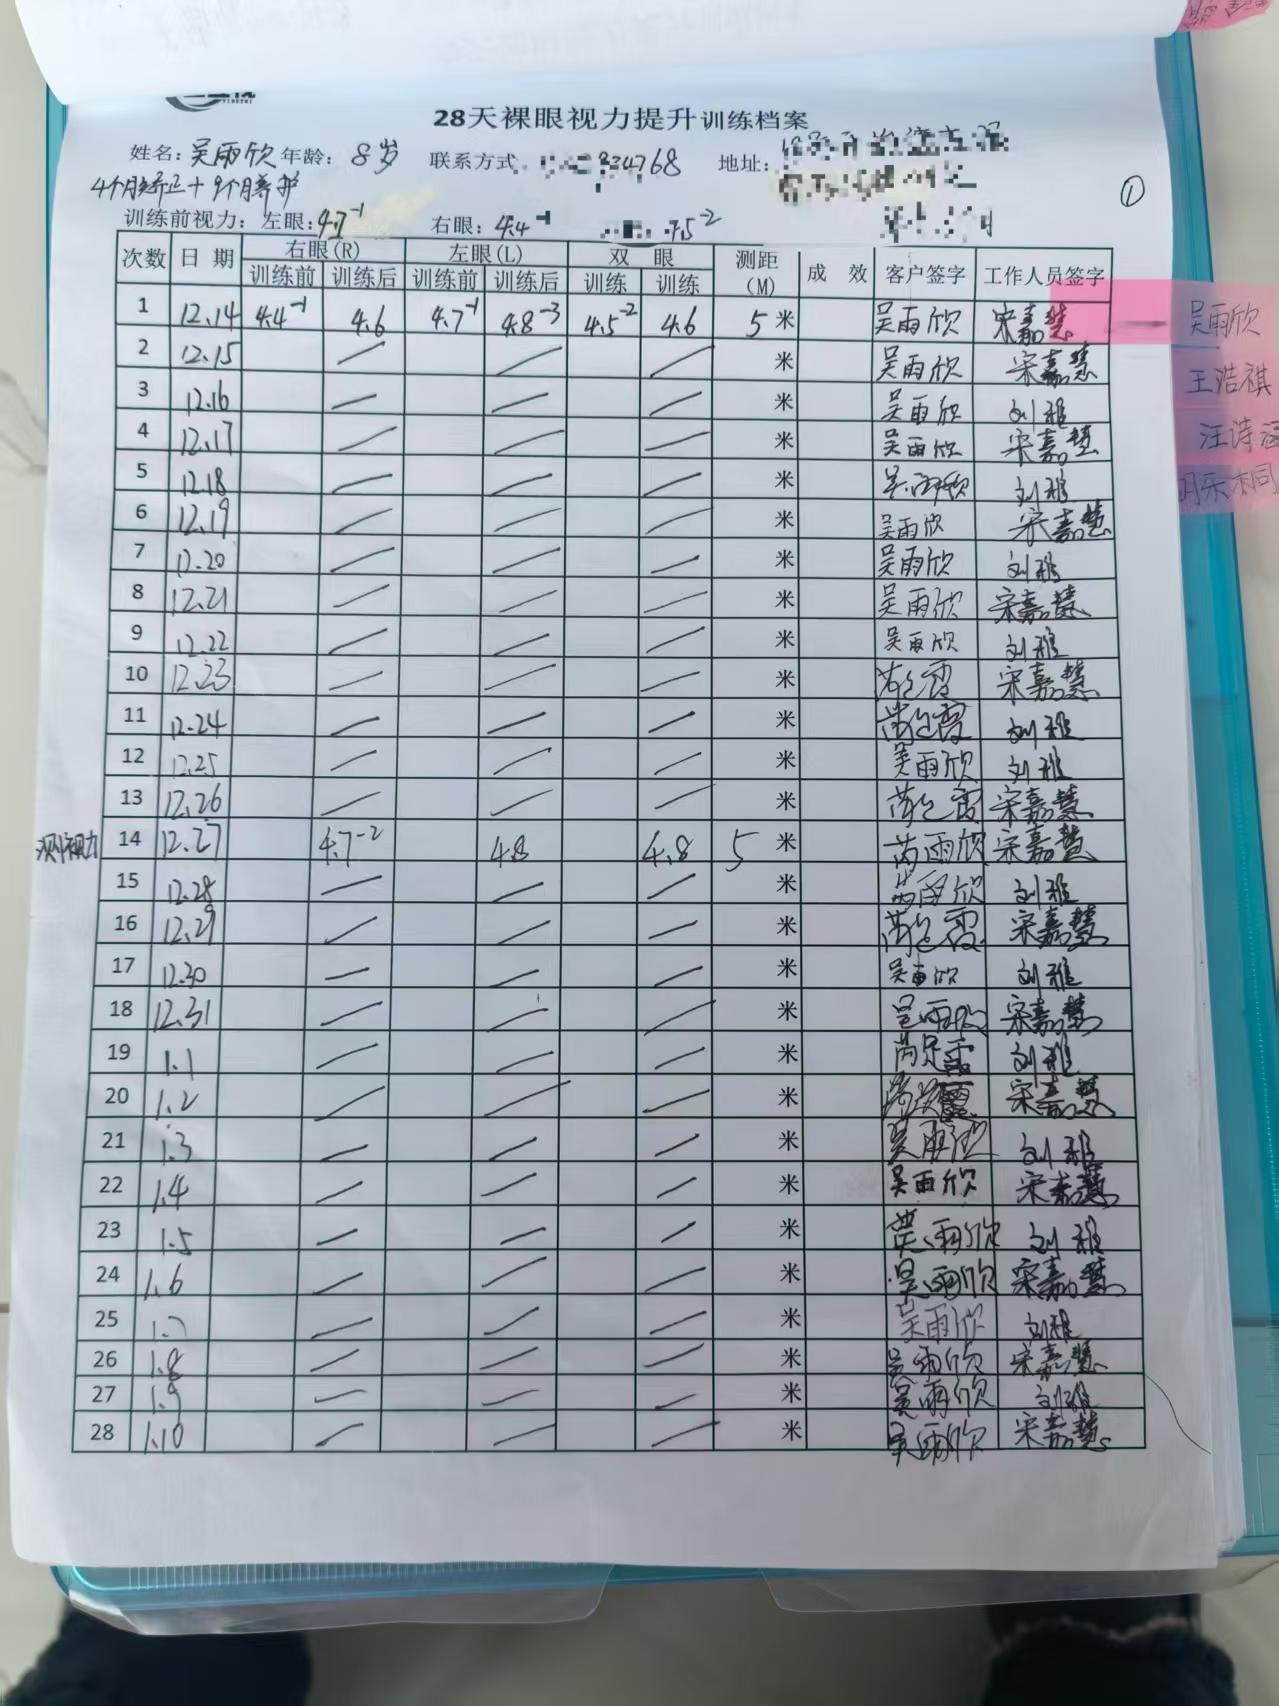 YINGSHI
28天裸眼视力提升训练档案
姓名：吴雨欣 年龄：8岁 联系方式：34768 地址：
4个月矫正+9个月养护
①
训练前视力：左眼：4.7⁻¹ 右眼：4.4⁻¹ 4.5⁻²
次数 日期 右眼(R) 左眼(L) 双眼 测距(M) 成效 客户签字 工作人员签字
训练前 训练后 训练前 训练后 训练 训练
1 12.14 4.4⁻¹ 4.6 4.7⁻¹ 4.8⁻³ 4.5⁻² 4.6 5 米 吴雨欣 宋嘉慧
2 12.15 米 吴雨欣 宋嘉慧
3 12.16 米 吴雨欣 刘雅
4 12.17 米 吴雨欣 宋嘉慧
5 12.18 米 吴雨欣 刘雅
6 12.19 米 吴雨欣 宋嘉慧
7 12.20 米 吴雨欣 刘雅
8 12.21 米 吴雨欣 宋嘉慧
9 12.22 米 吴雨欣 刘雅
10 12.23 米 宋嘉慧
11 12.24 米 刘雅
12 12.25 米 吴雨欣 刘雅
13 12.26 米 宋嘉慧
测视力 14 12.27 4.7⁻² 4.8 4.8 5 米 宋嘉慧
15 12.28 米 刘雅
16 12.29 米 宋嘉慧
17 12.30 米 吴雨欣 刘雅
18 12.31 米 吴雨欣 宋嘉慧
19 1.1 米 刘雅
20 1.2 米 宋嘉慧
21 1.3 米 吴雨欣 刘雅
22 1.4 米 吴雨欣 宋嘉慧
23 1.5 米 吴雨欣 刘雅
24 1.6 米 吴雨欣 宋嘉慧
25 1.7 米 吴雨欣 刘雅
26 1.8 米 吴雨欣 宋嘉慧
27 1.9 米 吴雨欣 刘雅
28 1.10 米 吴雨欣 宋嘉慧
吴雨欣
王浩祺
汪诗涵